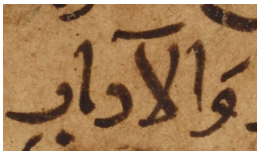 والآداب